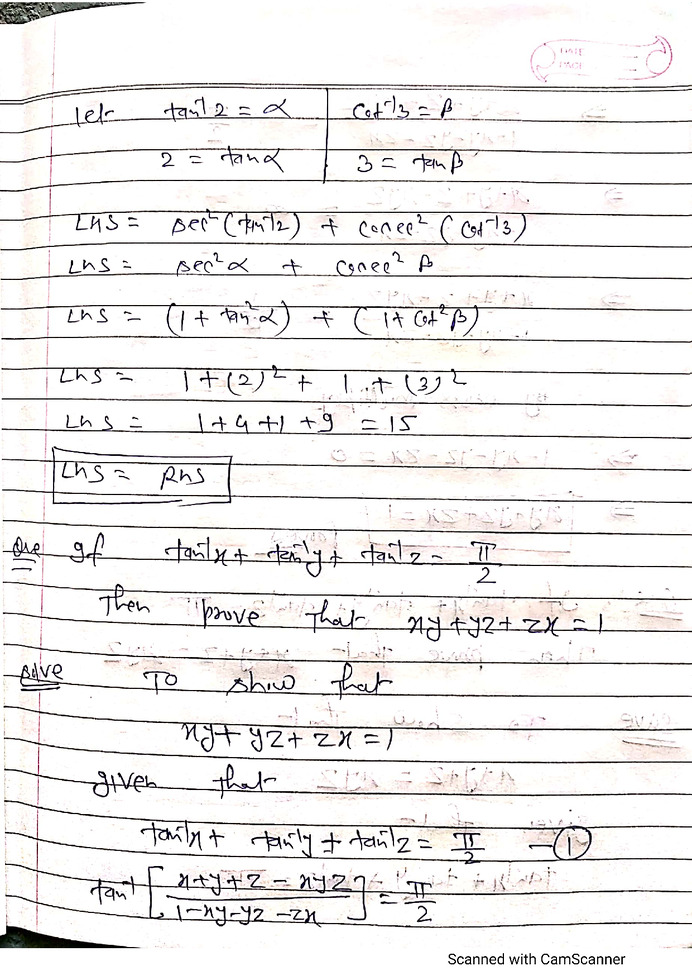 DATE
PAGE
let tan⁻¹2 = α | cot⁻¹3 = β
2 = tanα | 3 = tanβ
LHS = sec²(tan⁻¹2) + cosec²(cot⁻¹3)
LHS = sec²α + cosec²β
LHS = (1 + tan²α) + (1 + cot²β)
LHS = 1 + (2)² + 1 + (3)²
LHS = 1 + 4 + 1 + 9 = 15
LHS = RHS
Que If tan⁻¹x + tan⁻¹y + tan⁻¹z = π/2
Then prove that xy + yz + zx = 1
solve To show that
xy + yz + zx = 1
given that
tan⁻¹x + tan⁻¹y + tan⁻¹z = π/2 — ①
tan⁻¹[(x+y+z - xyz)/(1-xy-yz-zx)] = π/2
Scanned with CamScanner